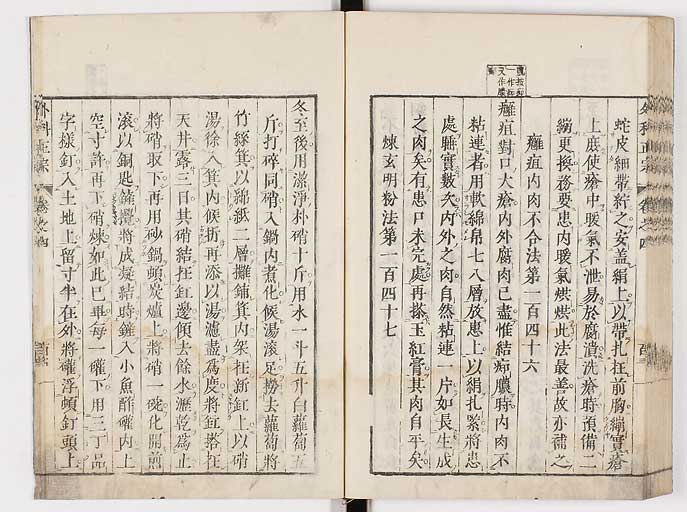 蛇皮細帶絎之安盖絹上以帶扎拄前胸繃實瘡
上庶使瘡中暖氣不泄易於腐潰洗瘡時預備二
繃更換務要患内暖氣烘烘此法最善故亦補之
癰疽内肉不合法第一百四十六
癰疽對口大瘡内外腐肉已盡惟結痂膿時内肉不
粘連者用軟綿帛七八層放患上以絹扎緊將患
處睡實數次内外之肉自然粘連一片如長生成
之肉矣有患口未完處再搽玉紅膏其肉自平矣
煉玄明粉法第一百四十七
外科正宗
卷之四
冬至後用潔淨朴硝十斤用水一斗五升白蘿蔔五
斤打碎同硝入鍋内煮化候湯滾足撈去蘿蔔將
竹箕以綿紙二層攤鋪箕内架在新缸上以硝
湯徐入箕内候折再添以湯濾盡爲度將缸撘在
天井露三日其硝結在缸邊傾去餘水瀝乾爲止
將硝取下再用砂鍋頓炭爐上將硝一碗化開煎
滾以銅匙鏟攪將成凝結時鏟入小魚酢礶内上
空寸許再下硝煉如此已畢每一礶下用三丁品
字樣釘入土地上留寸半在外將礶浮頓釘頭上
外科正宗
卷之四